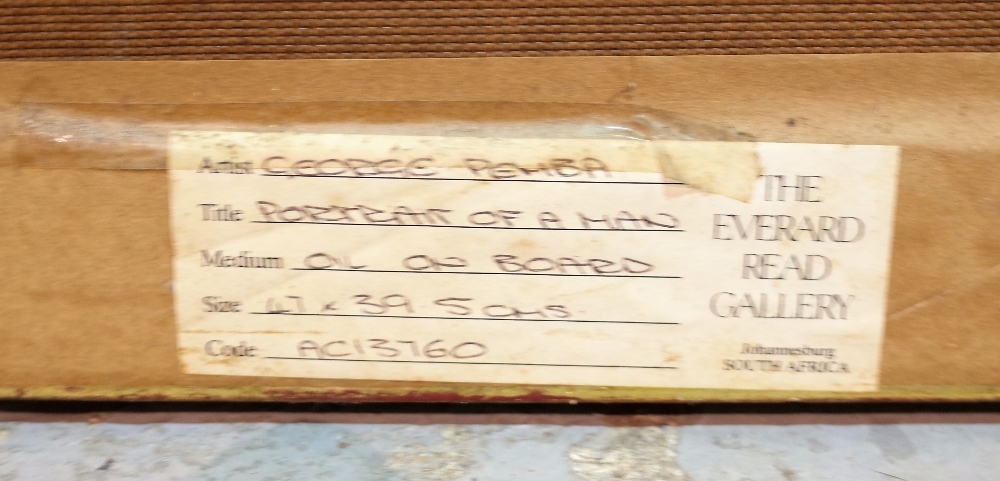 Artist GEORGE PEMBA
Title PORTRAIT OF A MAN
Medium OIL ON BOARD
Size 47 x 39 5 cms
Code AC13760
THE
EVERARD
READ
GALLERY
Johannesburg
SOUTH AFRICA